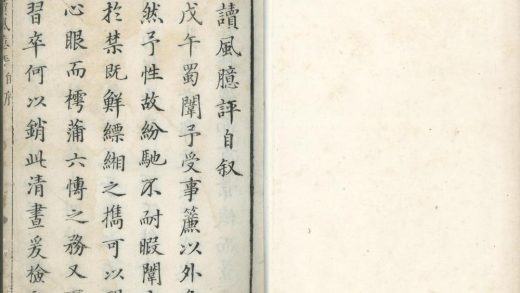 讀風臆評自叙
戊午蜀闈予受事簾以外
然予性故紛馳不耐暇闈
於禁既鮮縹緗之攜可以
心眼而樗蒲六博之務又
習卒何以銷此清晝爰檢